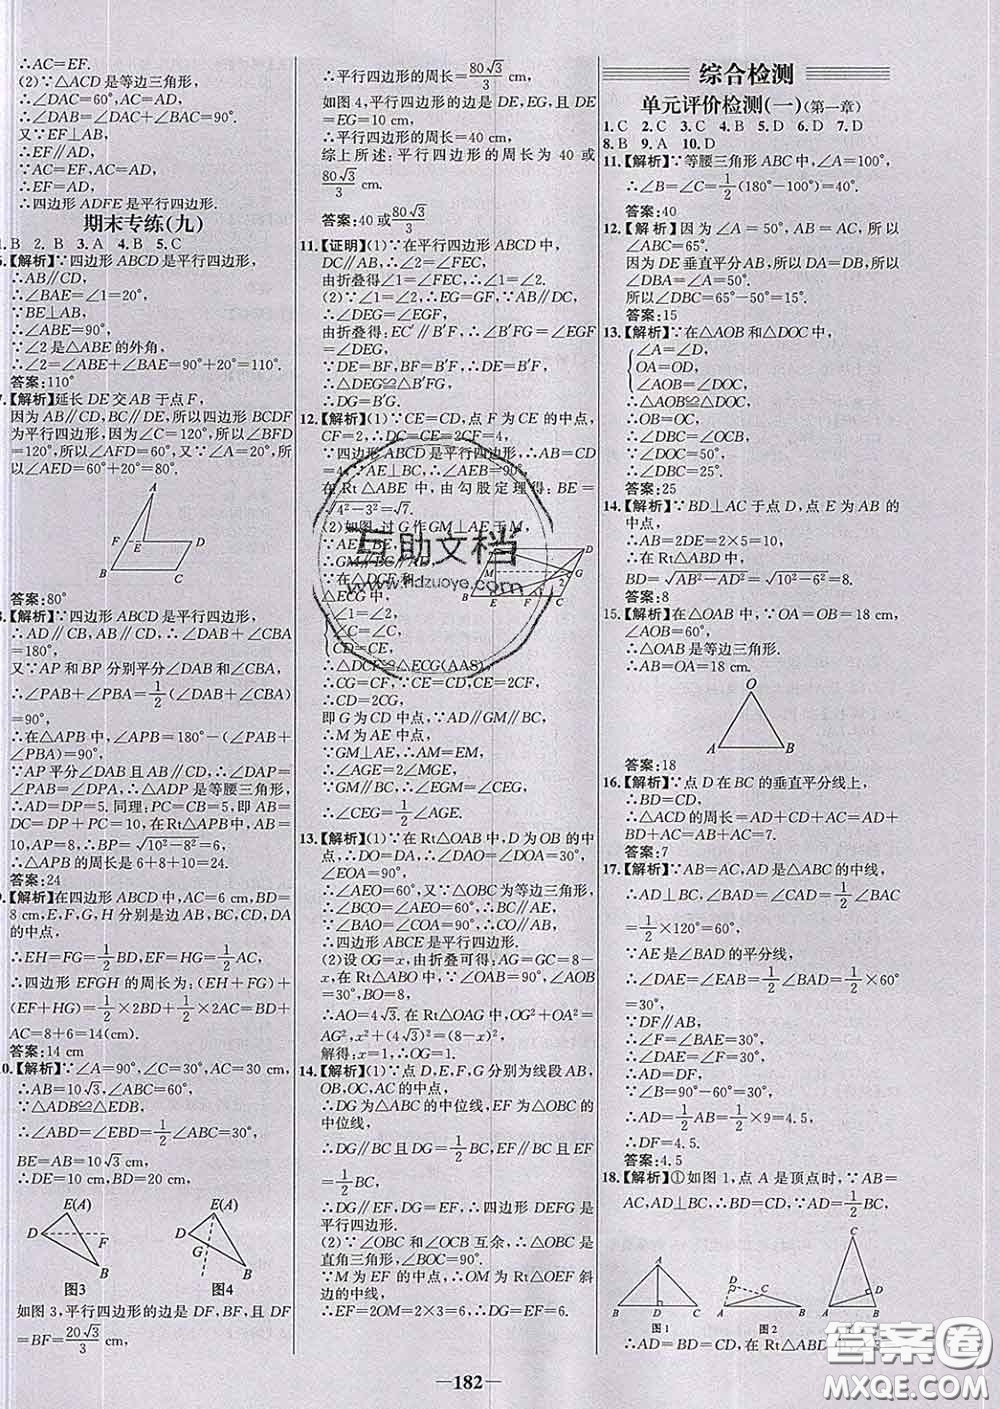 ∴AC=EF.
(2)∵△ACD是等边三角形,
∴∠DAC=60°,AC=AD,
∴∠DAB=∠DAC+∠BAC=90°.
又∵EF⊥AB,
∴EF∥AD,
∵AC=EF,AC=AD,
∴EF=AD,
∴四边形ADFE是平行四边形.
期末专练(九)
1. B 2. B 3. A 4. B 5. C
【解析】∵四边形ABCD是平行四边形,
∴AB∥CD,
∴∠BAE=∠1=20°,
∵BE⊥AB,
∴∠ABE=90°,
∵∠2是△ABE的外角,
∴∠2=∠ABE+∠BAE=90°+20°=110°.
答案:110°
【解析】延长DE交AB于点F,
因为AB∥CD,BC∥DE,所以四边形BCDF
为平行四边形,又因为∠C=120°,所以∠BFD
=120°,所以∠AFD=60°,又∵∠A=20°,所
以∠AED=60°+20°=80°.
A
F E D
B C
答案:80°
【解析】∵四边形ABCD是平行四边形,
∴AD∥CB,AB∥CD,∴∠DAB+∠CBA
=180°,
又∵AP和BP分别平分∠DAB和∠CBA,
∴∠PAB+∠PBA=1/2(∠DAB+∠CBA)
=90°,
∴在△APB中,∠APB=180°-(∠PAB+
∠PBA)=90°;
∵AP平分∠DAB且AB∥CD,∴∠DAP=
∠PAB=∠DPA,∴△ADP是等腰三角形,
∴AD=DP=5.同理:PC=CB=5,即AB=
DC=DP+PC=10,在Rt△APB中,AB=
10,AP=8,∴BP=√(10²-8²)=6.
∴△APB的周长是6+8+10=24.
答案:24
【解析】在四边形ABCD中,AC=6 cm,BD=
8 cm,E,F,G,H分别是边AB,BC,CD,DA
的中点,
∴EH=FG=1/2BD,EF=HG=1/2AC,
∴四边形EFGH的周长为:(EH+FG)+
(EF+HG)=1/2×2BD+1/2×2AC=BD+
AC=8+6=14(cm).
答案:14 cm
【解析】∵∠A=90°,∠C=30°,AC=30 cm,
∴AB=10√3,∠ABC=60°,
∵△ADB≌△EDB,
∴∠ABD=∠EBD=1/2∠ABC=30°,
BE=AB=10√3 cm,
∴DE=10 cm,BD=20 cm,
E(A) D F B 图3
E(A) D G B 图4
如图3,平行四边形的边是DF,BF,且DF
=BF=20√3/3 cm,
∴平行四边形的周长=80√3/3 cm,
如图4,平行四边形的边是DE,EG,且DE
=EG=10 cm,
∴平行四边形的周长=40 cm,
综上所述:平行四边形的周长为40或
80√3/3 cm.
答案:40或80√3/3
11.【证明】(1)∵在平行四边形ABCD中,
DC∥AB,∴∠2=∠FEC,
由折叠得:∠1=∠FEC,∴∠1=∠2.
(2)∵∠1=∠2,∴EG=GF,∵AB∥DC,
∴∠DEG=∠EGF,
由折叠得:EC′∥B′F,∴∠B′FG=∠EGF
=∠DEG,
∵DE=BF,BF=B′F,∴DE=B′F,
∴△DEG≌△B′FG,
∴DG=B′G.
12.【解析】(1)∵CE=CD,点F为CE的中点,
CF=2,∴DC=CE=2CF=4,
∵四边形ABCD是平行四边形,∴AB=CD
=4,∵AE⊥BC,∴∠AEB=90°,
在Rt△ABE中,由勾股定理得:BE=
√(4²-3²)=√7.
(2)如图,过G作GM⊥AE于M,
∵AE⊥BE,
∴GM∥BC∥AD,
∵在△DCF和
△ECG中,
∠C=∠C,
CD=CE,
∴△DCF≌△ECG(AAS),
∴CG=CF,∵CE=CD,CE=2CF,
∴CD=2CG,
即G为CD中点,∵AD∥GM∥BC,
∴M为AE中点,
∵GM⊥AE,∴AM=EM,
∴∠AGE=2∠MGE,
∵GM∥BC,∴∠EGM=∠CEG,
∴∠CEG=1/2∠AGE.
13.【解析】(1)∵在Rt△OAB中,D为OB的中
点,∴DO=DA,∴∠DAO=∠DOA=30°,
∠EOA=90°,又∵△OBC为等边三角形,
∴∠BCO=∠AEO=60°,∴BC∥AE,
∵∠BAO=∠COA=90°,∴CO∥AB,
∴四边形ABCE是平行四边形.
(2)设OG=x,由折叠可得:AG=GC=8-
x,在Rt△ABO中,∵∠OAB=90°,∠AOB
=30°,BO=8,
∴AO=4√3.在Rt△OAG中,OG²+OA²=
AG²,x²+(4√3)²=(8-x)²,
解得:x=1,∴OG=1.
14.【解析】(1)∵点D,E,F,G分别为线段AB,
OB,OC,AC的中点,
∴DG为△ABC的中位线,EF为△OBC的
中位线,
∴DG∥BC且DG=1/2BC,EF∥BC且EF
=1/2BC,
∴DG∥EF,DG=EF,∴四边形DEFG是
平行四边形.
(2)∵∠OBC和∠OCB互余,∴△OBC是
直角三角形,∠BOC=90°.
∵M为EF的中点,∴OM为Rt△OEF斜
边的中线,
∴EF=2OM=2×3=6,∴DG=EF=6.
综合检测
单元评价检测(一)(第一章)
1. C 2. C 3. C 4. B 5. D 6. D 7. D
8. B 9. A 10. D
11.【解析】∵等腰三角形ABC中,∠A=100°,
∴∠B=∠C=1/2(180°-100°)=40°.
答案:40
12.【解析】因为∠A=50°,AB=AC,所以
∠ABC=65°.
因为DE垂直平分AB,所以DA=DB,所以
∠DBA=∠A=50°.
所以∠DBC=65°-50°=15°.
答案:15
13.【解析】∵在△AOB和△DOC中,
∠A=∠D,
OA=OD,
∠AOB=∠DOC,
∴OB=OC.
∴∠DBC=∠OCB.
∵∠DOC=50°,
∴∠DBC=25°.
答案:25
14.【解析】∵BD⊥AC于点D,点E为AB的
中点,
∴AB=2DE=2×5=10,
∴在Rt△ABD中,
BD=√(AB²-AD²)=√(10²-6²)=8.
答案:8
15.【解析】在△OAB中,∵OA=OB=18 cm,
∠AOB=60°,
∴△OAB是等边三角形.
∴AB=OA=18 cm.
O
A B
答案:18
16.【解析】∵点D在BC的垂直平分线上,
∴BD=CD,
∴△ACD的周长=AD+CD+AC=AD+
BD+AC=AB+AC=7.
答案:7
17.【解析】∵AB=AC,AD是△ABC的中线,
∴AD⊥BC,∠BAD=∠CAD=1/2∠BAC
=1/2×120°=60°.
∵AE是∠BAD的平分线,
∴∠DAE=∠EAB=1/2∠BAD=1/2×60°
=30°.
∵DF∥AB,
∴∠F=∠BAE=30°.
∴∠DAE=∠F=30°,
∴AD=DF.
∵∠B=90°-60°=30°,
∴AD=1/2AB=1/2×9=4.5,
∴DF=4.5.
答案:4.5
18.【解析】①如图1,点A是顶点时,∵AB=
AC,AD⊥BC,∴BD=CD,∵AD=1/2BC,
A B D C 图1
D A B C 图2
∴AD=BD=CD,在Rt△ABD中,∠B=
182
互助文档
www.hdzuoye.com
答案圈
MXQE.COM